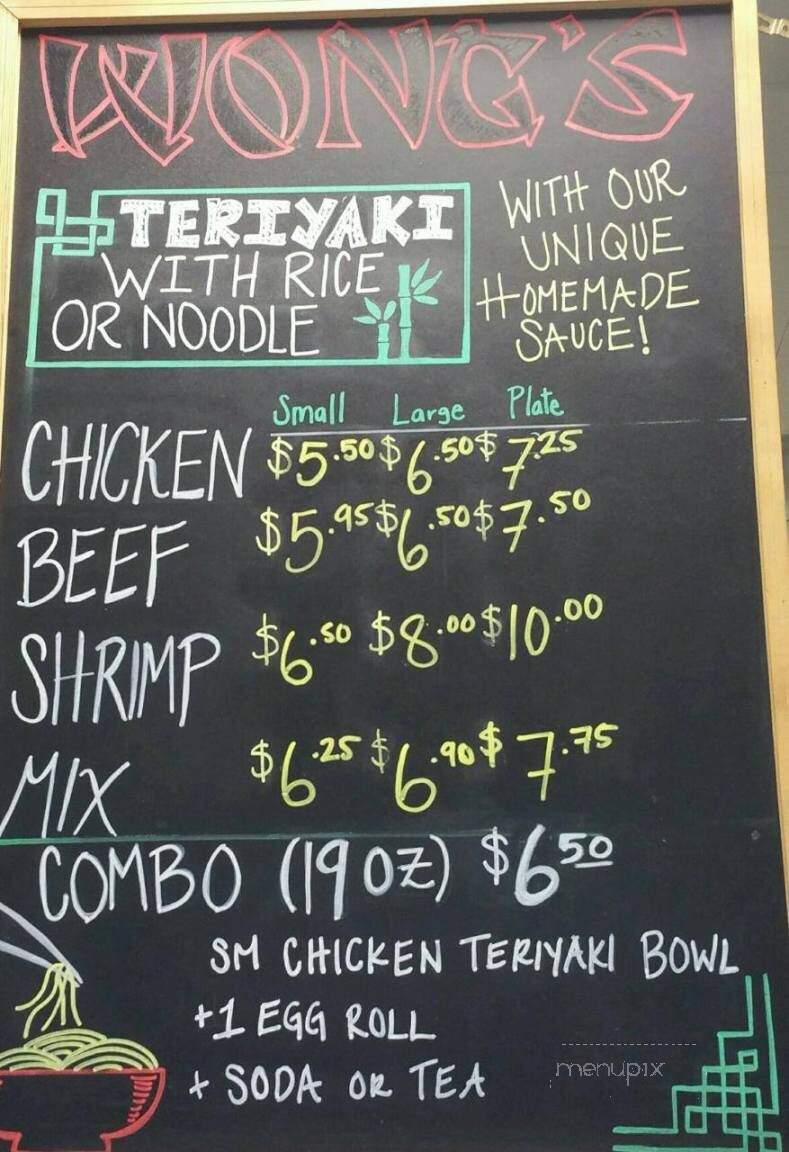 WONG'S
TERIYAKI
WITH RICE
OR NOODLE
WITH OUR
UNIQUE
HOMEMADE
SAUCE!
Small Large Plate
CHICKEN $5.50 $6.50 $7.25
BEEF $5.95 $6.50 $7.50
SHRIMP $6.50 $8.00 $10.00
MIX $6.25 $6.90 $7.75
COMBO (19 OZ) $6.50
SM CHICKEN TERIYAKI BOWL
+1 EGG ROLL
+ SODA OR TEA
menupix